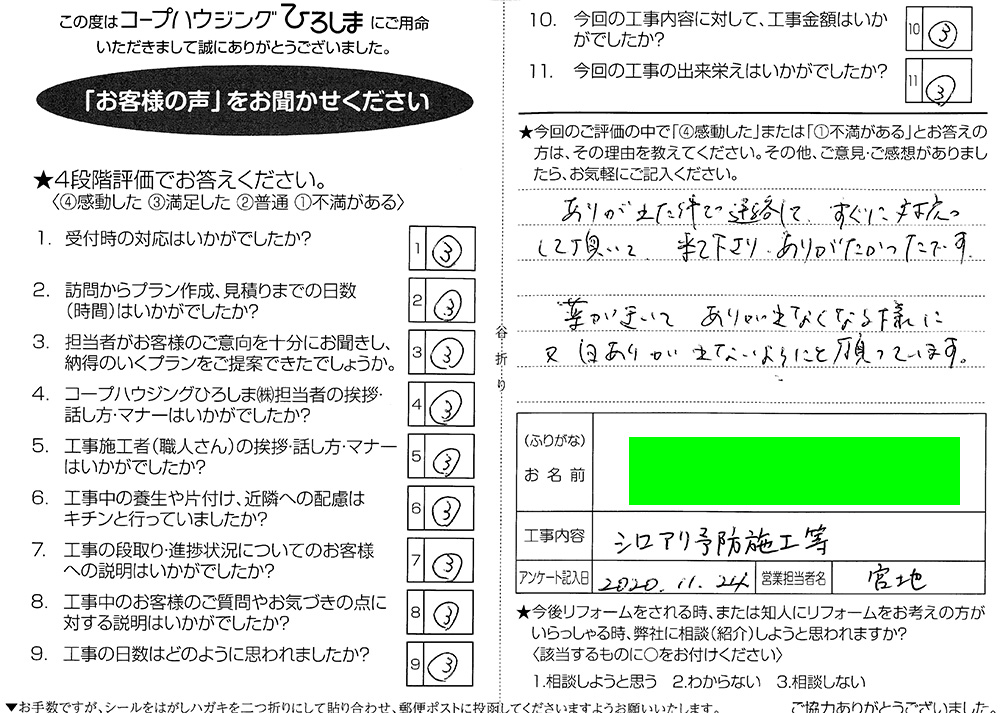 この度はコープハウジングひろしまにご用命
いただきまして誠にありがとうございました。
「お客様の声」をお聞かせください
★4段階評価でお答えください。
〈④感動した ③満足した ②普通 ①不満がある〉
1. 受付時の対応はいかがでしたか? 1 ③
2. 訪問からプラン作成、見積りまでの日数
（時間）はいかがでしたか? 2 ③
3. 担当者がお客様のご意向を十分にお聞きし、
納得のいくプランをご提案できたでしょうか。 3 ③
4. コープハウジングひろしま㈱担当者の挨拶・
話し方・マナーはいかがでしたか? 4 ③
5. 工事施工者（職人さん）の挨拶・話し方・マナー
はいかがでしたか? 5 ③
6. 工事中の養生や片付け、近隣への配慮は
キチンと行っていましたか? 6 ③
7. 工事の段取り・進捗状況についてのお客様
への説明はいかがでしたか? 7 ③
8. 工事中のお客様のご質問やお気づきの点に
対する説明はいかがでしたか? 8 ③
9. 工事の日数はどのように思われましたか? 9 ③
▼お手数ですが、シールをはがしハガキを二つ折りにして貼り合わせ、郵便ポストに投函してくださいますようお願いいたします。
谷折り
10. 今回の工事内容に対して、工事金額はいか
がでしたか? 10 ③
11. 今回の工事の出来栄えはいかがでしたか? 11 ③
★今回のご評価の中で「④感動した」または「①不満がある」とお答えの
方は、その理由を教えてください。その他、ご意見・ご感想がありまし
たら、お気軽にご記入ください。
ありが出た件で連絡して、すぐに対応
して頂いて 来て下さり、ありがたかったです。
薬が まいて ありが出なくなる様に
又 はありが 出ないようにと願っています。
（ふりがな）
お名前
工事内容 シロアリ予防施工等
アンケート記入日 2020.11.24 営業担当者名 宮地
★今後リフォームをされる時、または知人にリフォームをお考えの方が
いらっしゃる時、弊社に相談（紹介）しようと思われますか?
〈該当するものに○をお付けください〉
1.相談しようと思う 2.わからない 3.相談しない
ご協力ありがとうございました。